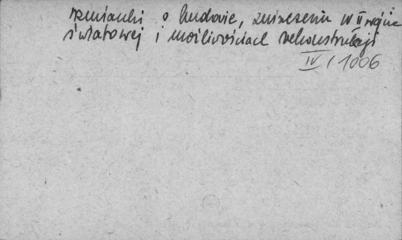 wzmianki o budowie, zniszczeniu w II wojnie
światowej i możliwościach rekonstrukcji
IV / 1006